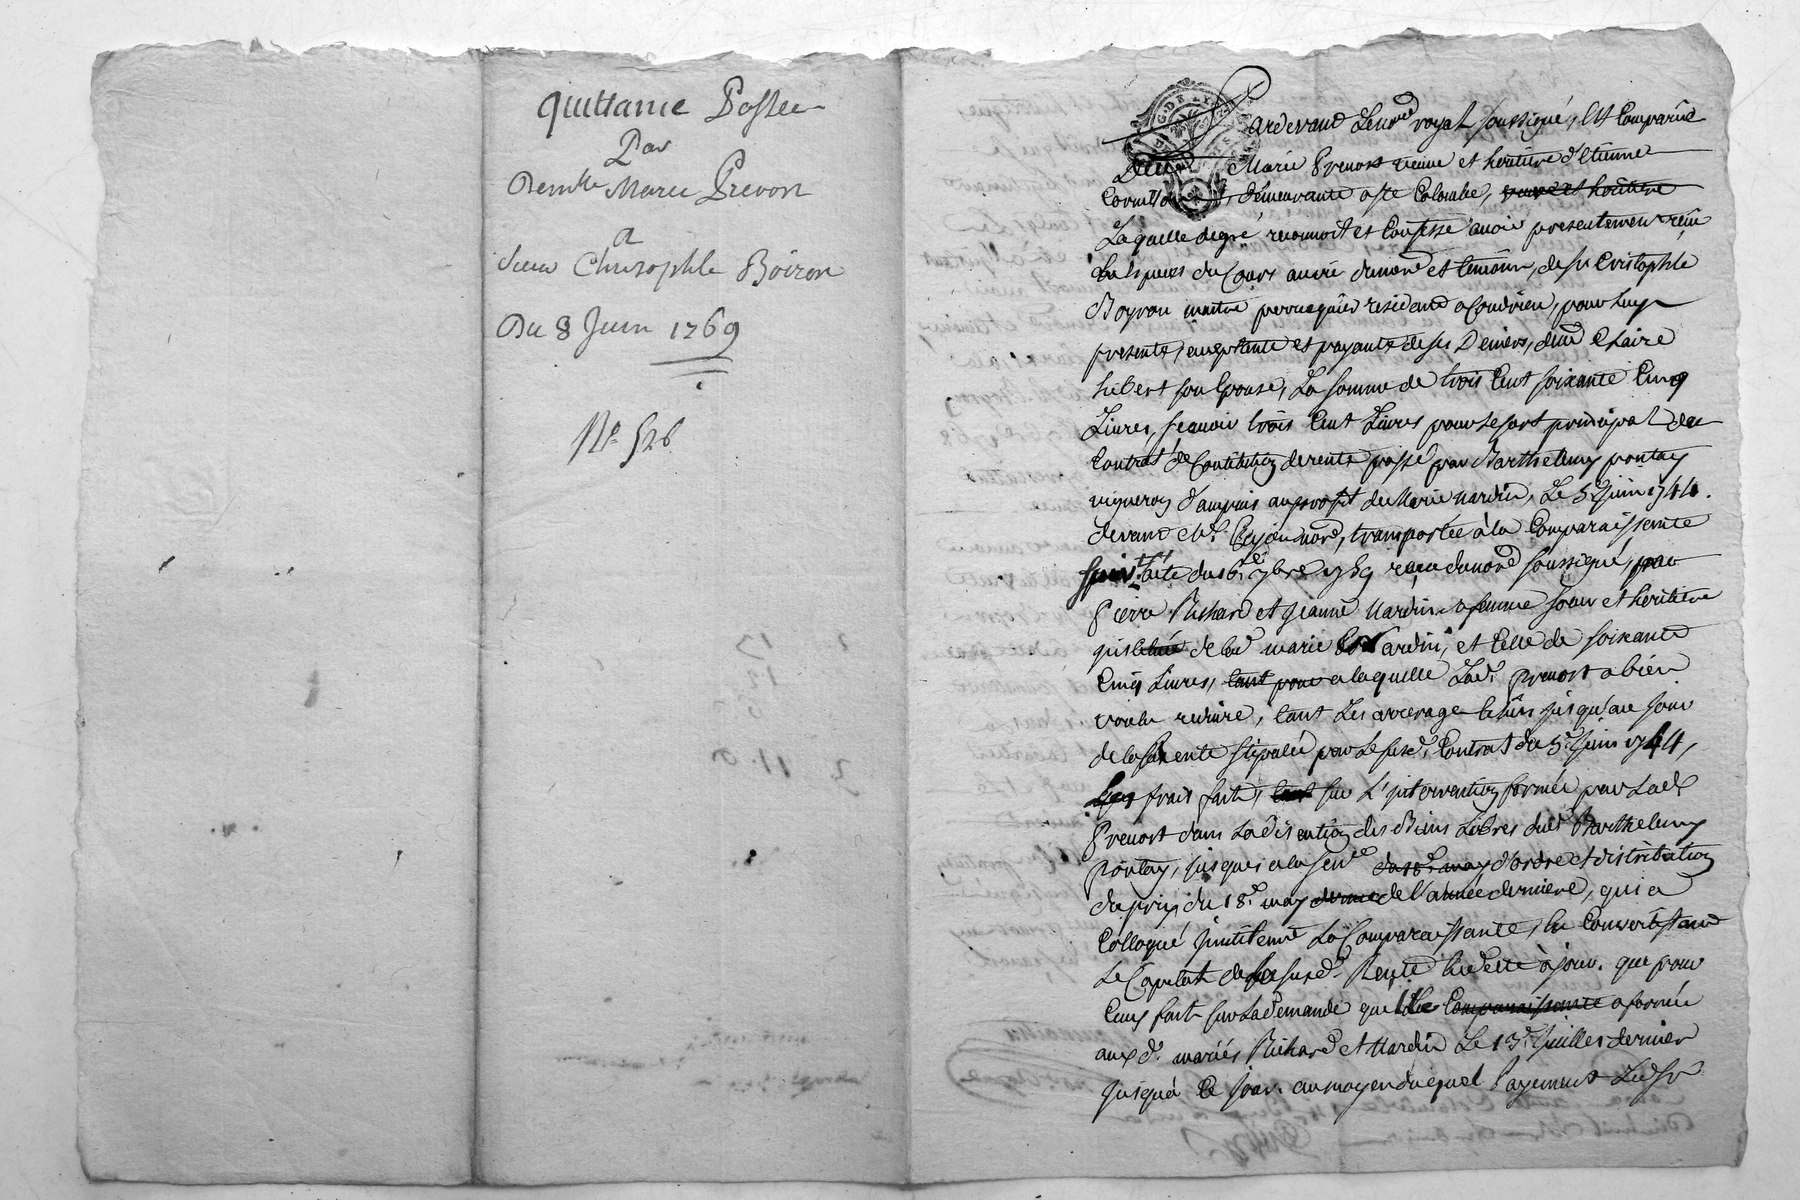 quittance Passee
Par
Demlle Marie Prevost
a
Sieur Christophle Boiron
Du 8 Juin 1769
No 526
Pardevant Le nore royal soussigné, Est Comparüe
Delle Marie Prevost veuve et héritière d'Etienne
demeurante a Ste Colombe, veuve et héritiere
Laquelle de gré reconnoit et Confesse avoir presentement reçu
En Especes du Cours au vû du nore et temoins, de Sr Cristophle
Boyron maitre perruquier residant a Condrieu, pour luy
presente, acceptante et payante de ses Deniers, delle Claire
hibert son Epouse, La somme de trois Cent soixante Cinq
Livres, sçavoir trois Cent Livres pour le sort principal du
Contrat de Constitution de rente passé par Barthelemy pontay
vigneron d'ampuis au profit de Marie nardin, Le 5e Juin 1744.
devant Me nore, transportée à la Comparaissante
suivt l'acte du 16e 7bre 1759 reçu du nore soussigné, par
Pierre Richard et Jeanne Nardin sa femme soeur et heritière
de lad marie Nardin, et Celle de soixante
Cinq Livres, tant pour a laquelle Lad. prevost a bien
voulu reduire, tant Les arrerages Echûs jusqu'au jour
de la Rente stipulée par Le susd. Contrat du 5e Juin 1744,
Les frais faits, tant sur L'intervention formée par Lad
Prevost dans La Discution des Biens Libres dud Barthelemy
pontay, jusques a la sence du 18e may d'ordre et distribution
du prix du 18e may dernier de l'année derniere, qui a
Colloqué La Comparaissante, En Convertissant
Le Capital de la susd. Rente En dette à jour. que pour
Ceux faits sur La demande que Elle Comparaissante a formée
aux d. mariés Richard et Nardin Le 13e Juillet dernier
jusqu'à Ce jour. au moyen duquel Payement Led Sr